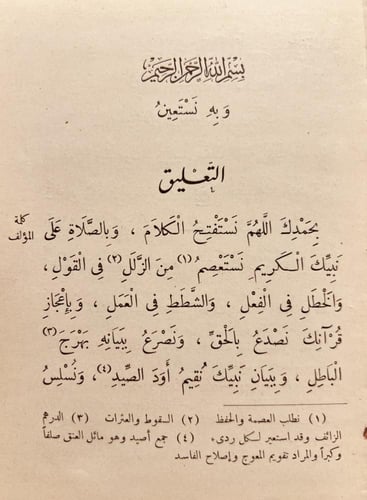 بِسْمِ اللَّهِ الرَّحْمَنِ الرَّحِيمِ
وَبِهِ نَسْتَعِينُ
التَّعْلِيق
بِحَمْدِكَ اللَّهُمَّ نَسْتَفْتِحُ الْكَلَامَ ، وَبِالصَّلَاةِ عَلَى
كلمة المؤلف
نَبِيِّكَ الْكَرِيمِ نَسْتَعْصِمُ (١) مِنَ الزَّلَلِ (٢) فِى الْقَوْلِ ،
وَالْخَطَلِ فِى الْفِعْلِ ، وَالشَّطَطِ فِى الْعَمَلِ ، وَبِإِعْجَازِ
قُرْآنِكَ نَصْدَعُ بِالْحَقِّ ، وَنَصْرَعُ بِبَيَانِهِ بَهْرَجَ (٣)
الْبَاطِلِ ، وَبِبَيَانِ نَبِيِّكَ نُقِيمُ أَوَدَ الصِّيدِ (٤)، وَنُسْلِسُ
(١) نطلب العصمة والحفظ (٢) السقوط والعثرات (٣) الدرهم
الزائف وقد استعير لكل ردىء (٤) جمع أصيد وهو مائل العنق صلفاً
وكبراً والمراد تقويم المعوج وإصلاح الفاسد